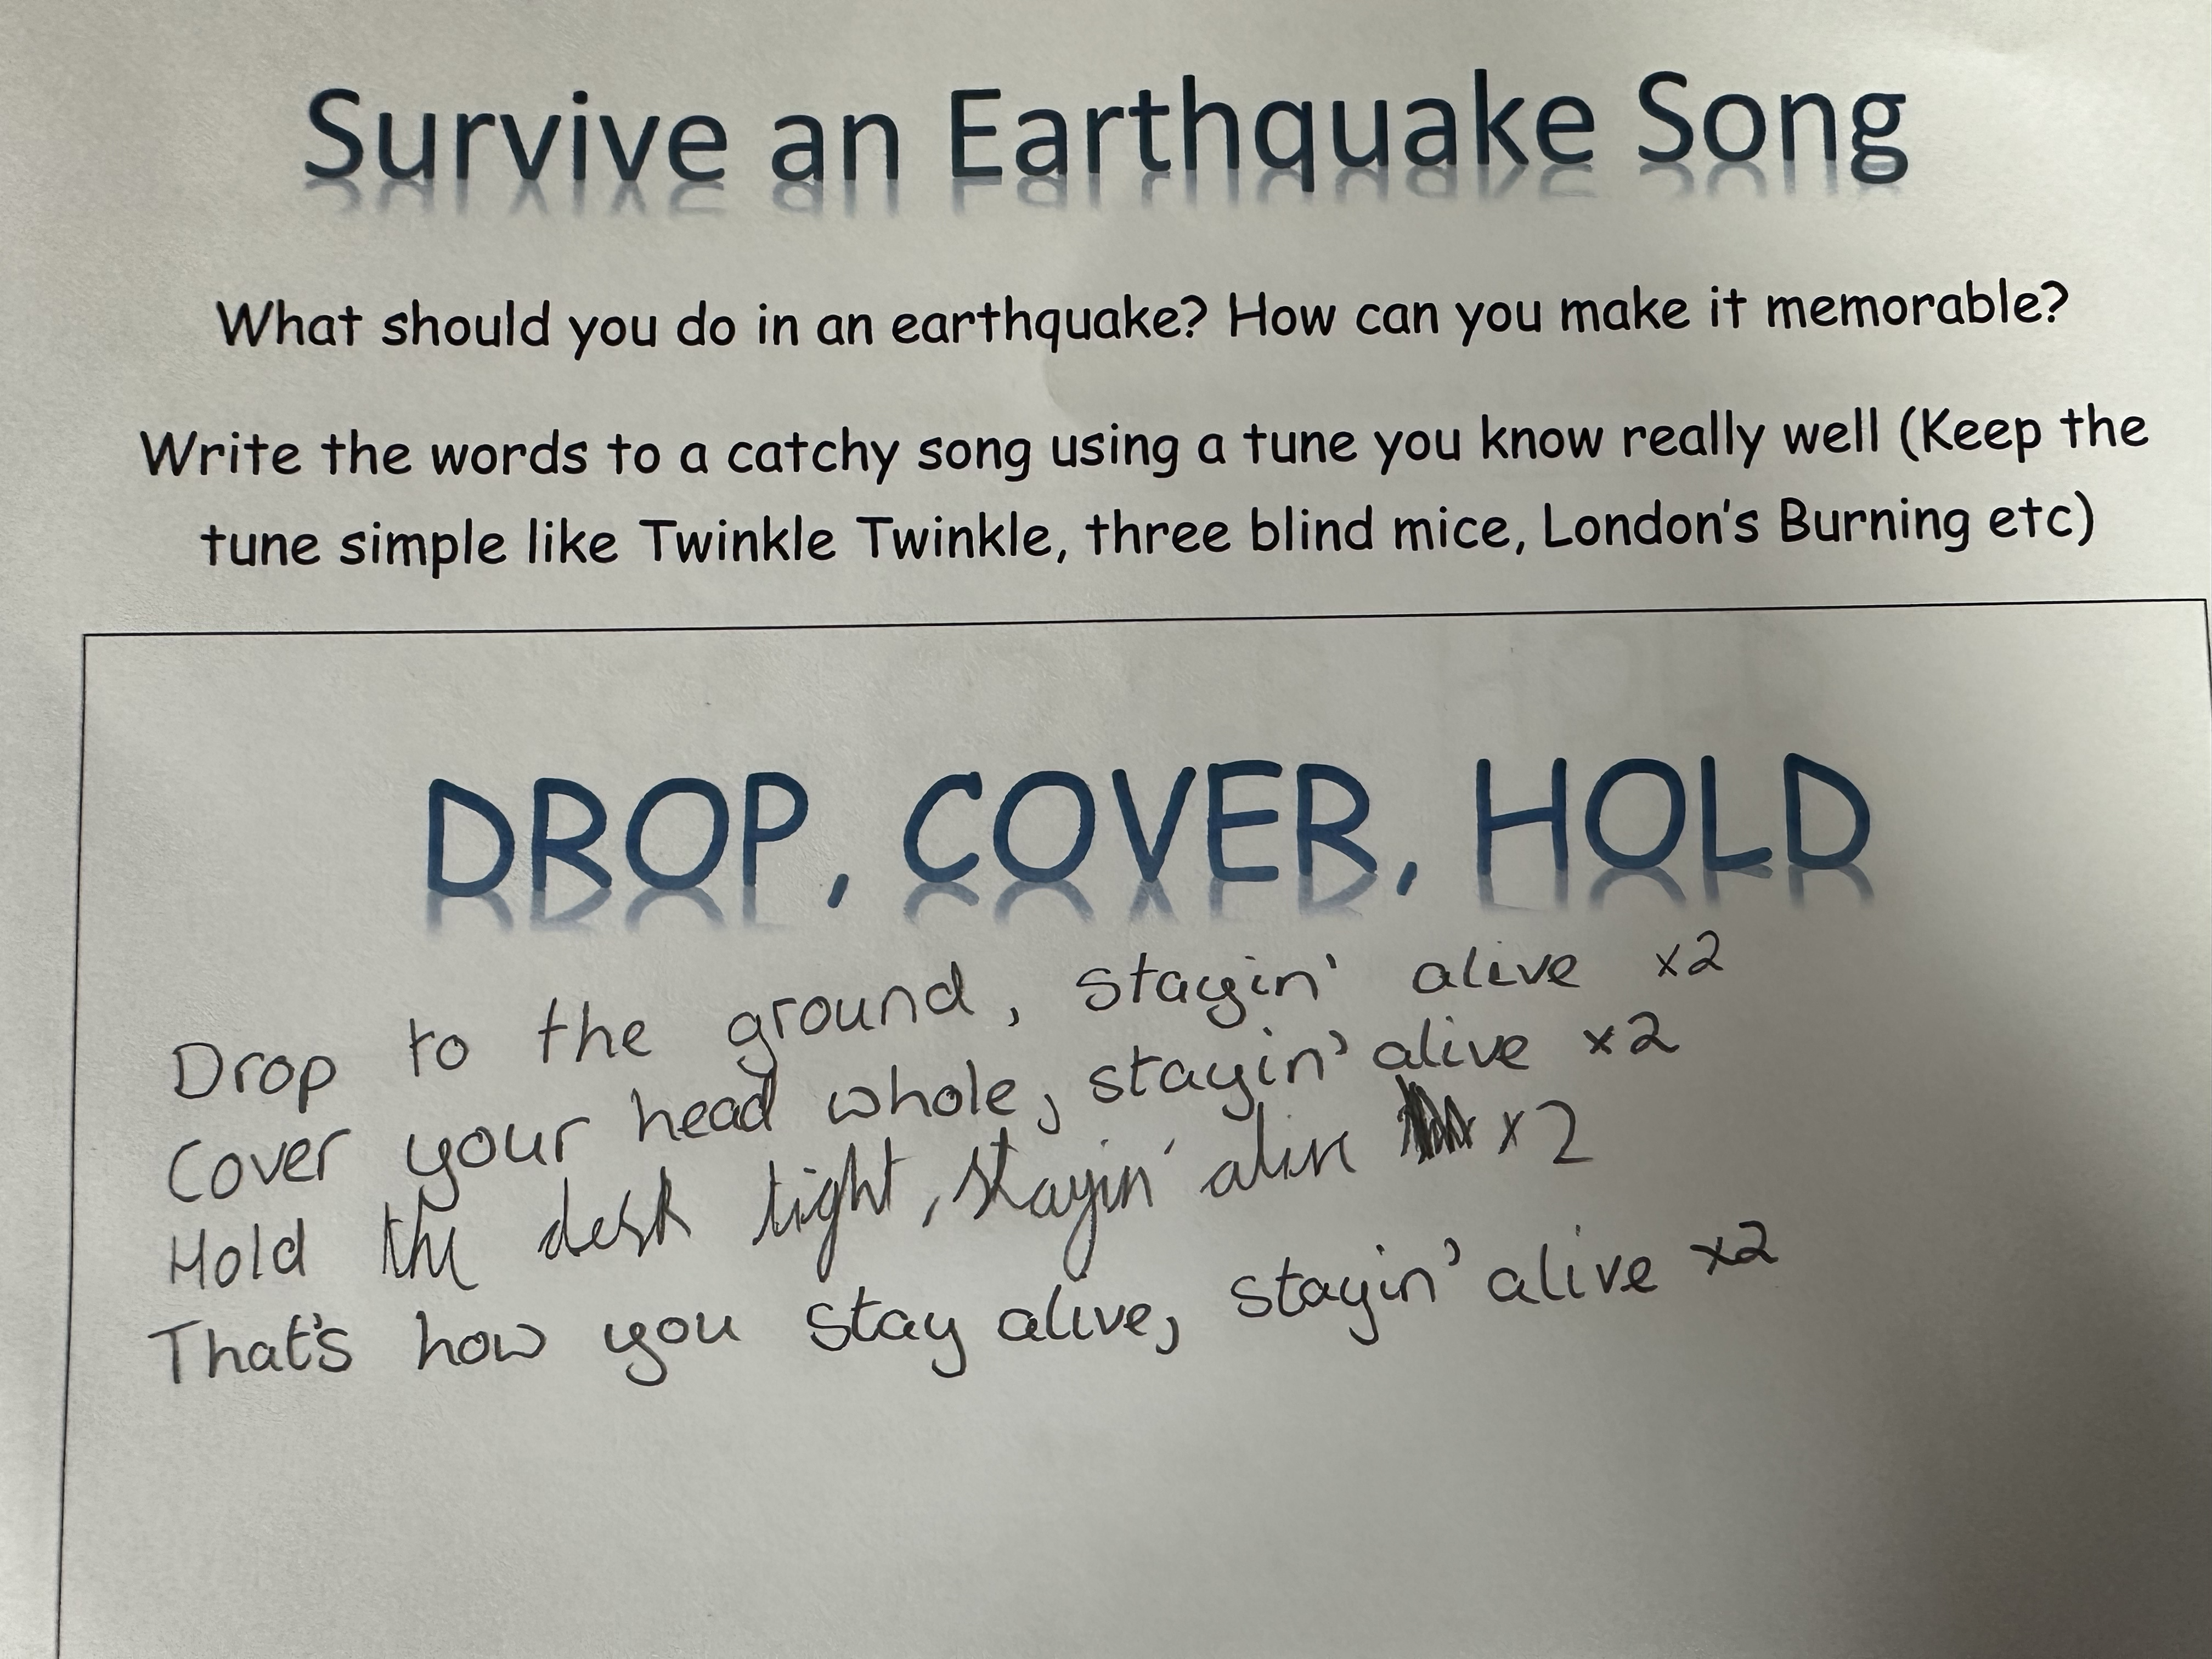 Survive an Earthquake Song
What should you do in an earthquake? How can you make it memorable?
Write the words to a catchy song using a tune you know really well (Keep the
tune simple like Twinkle Twinkle, three blind mice, London's Burning etc)
DROP, COVER, HOLD
Drop to the ground, stayin' alive x2
Cover your head whole, stayin' alive x2
Hold the desk tight, stayin' alive x2
That's how you stay alive, stayin' alive x2